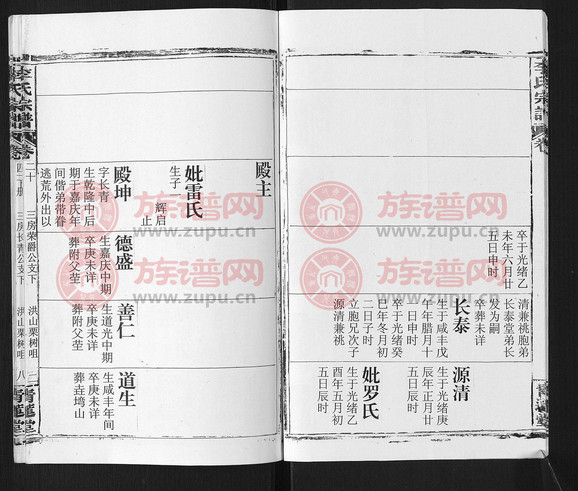 李氏宗譜
卷
卒于光绪乙
未年六月廿
五日申时
清兼桃胞弟
长泰堂弟长
发为嗣
卒葬未详
长泰
生于咸丰戊
午年腊月十
一日申时
卒于光绪癸
巳年冬月初
二日子时
立胞兄次子
源清兼桃
源清
生于光绪庚
辰年正月廿
五日辰时
妣罗氏
生于光绪乙
酉年五月初
五日辰时
殿主
妣雷氏
生子一
辉启
止
殿坤
字长青
生乾隆中后
期于嘉庆年
间偕弟带眷
逃荒外出以
德盛
生嘉庆中期
卒庚未详
葬附父茔
善仁
生道光中期
卒庚未详
葬附父茔
道生
生咸丰年间
卒庚未详
葬垚塆山
二十
三房荣爵公支下
洪山栗树咀
三房长青公支下
洪山栗树咀
八
李氏宗譜
卷
青蓮堂
族谱网
www.zupu.cn
族谱网
www.zupu.cn
族谱网
www.zupu.cn
族谱网
www.zupu.cn